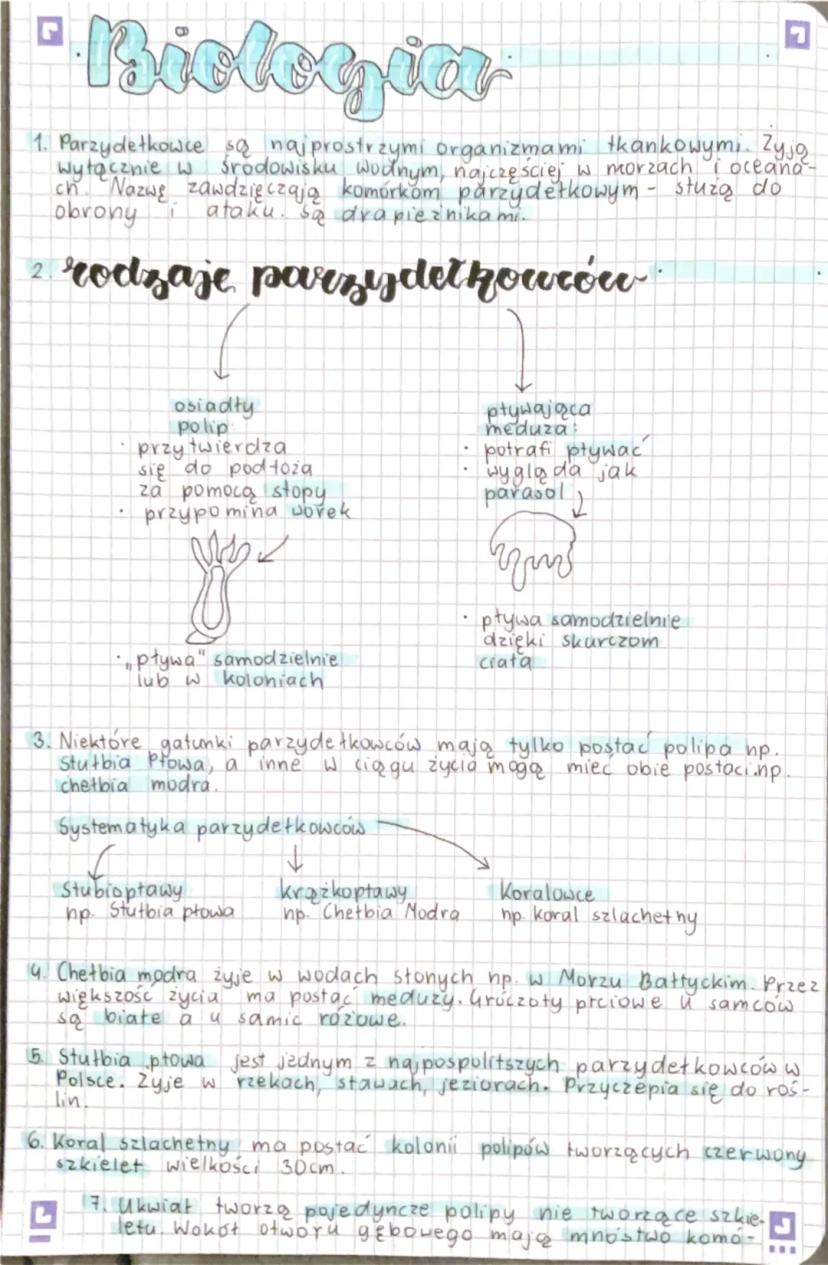 Biologia
1. Parzydełkowce są najprostrzymi organizmami tkankowymi. Żyją
wyłącznie w środowisku wodnym, najczęściej w morzach i oceana-
ch. Nazwę zawdzięczają komórkom parzydełkowym - służą do
obrony i ataku. są drapieżnikami.
2. rodzaje parzydełkowców
osiadły
polip:
· przytwierdza
się do podłoża
za pomocą stopy
· przypomina worek
· „pływa" samodzielnie
lub w koloniach
pływająca
meduza:
· potrafi pływać
· wygląda jak
parasol
· pływa samodzielnie
dzięki skurczom
ciała
3. Niektóre gatunki parzydełkowców mają tylko postać polipa np.
Stułbia Płowa, a inne w ciągu życia mogą mieć obie postaci.np.
chełbia modra.
Systematyka parzydełkowców
Stubiopławy
np. Stułbia płowa
krążkopławy
np. Chełbia Modra
Koralowce
np. koral szlachetny
4. Chełbia modra żyje w wodach słonych np. w Morzu Bałtyckim. Przez
większość życia ma postać meduzy. Gruczoły płciowe u samców
są białe a u samic różowe.
5. Stułbia płowa jest jednym z najpospolitszych parzydełkowców w
Polsce. Żyje w rzekach, stawach, jeziorach. Przyczepia się do roś-
lin.
6. Koral szlachetny ma postać kolonii polipów tworzących czerwony
szkielet wielkości 30cm.
7. Ukwiał tworzą pojedyncze polipy nie tworzące szkie-
letu. Wokół otworu gębowego mają mnóstwo komó-